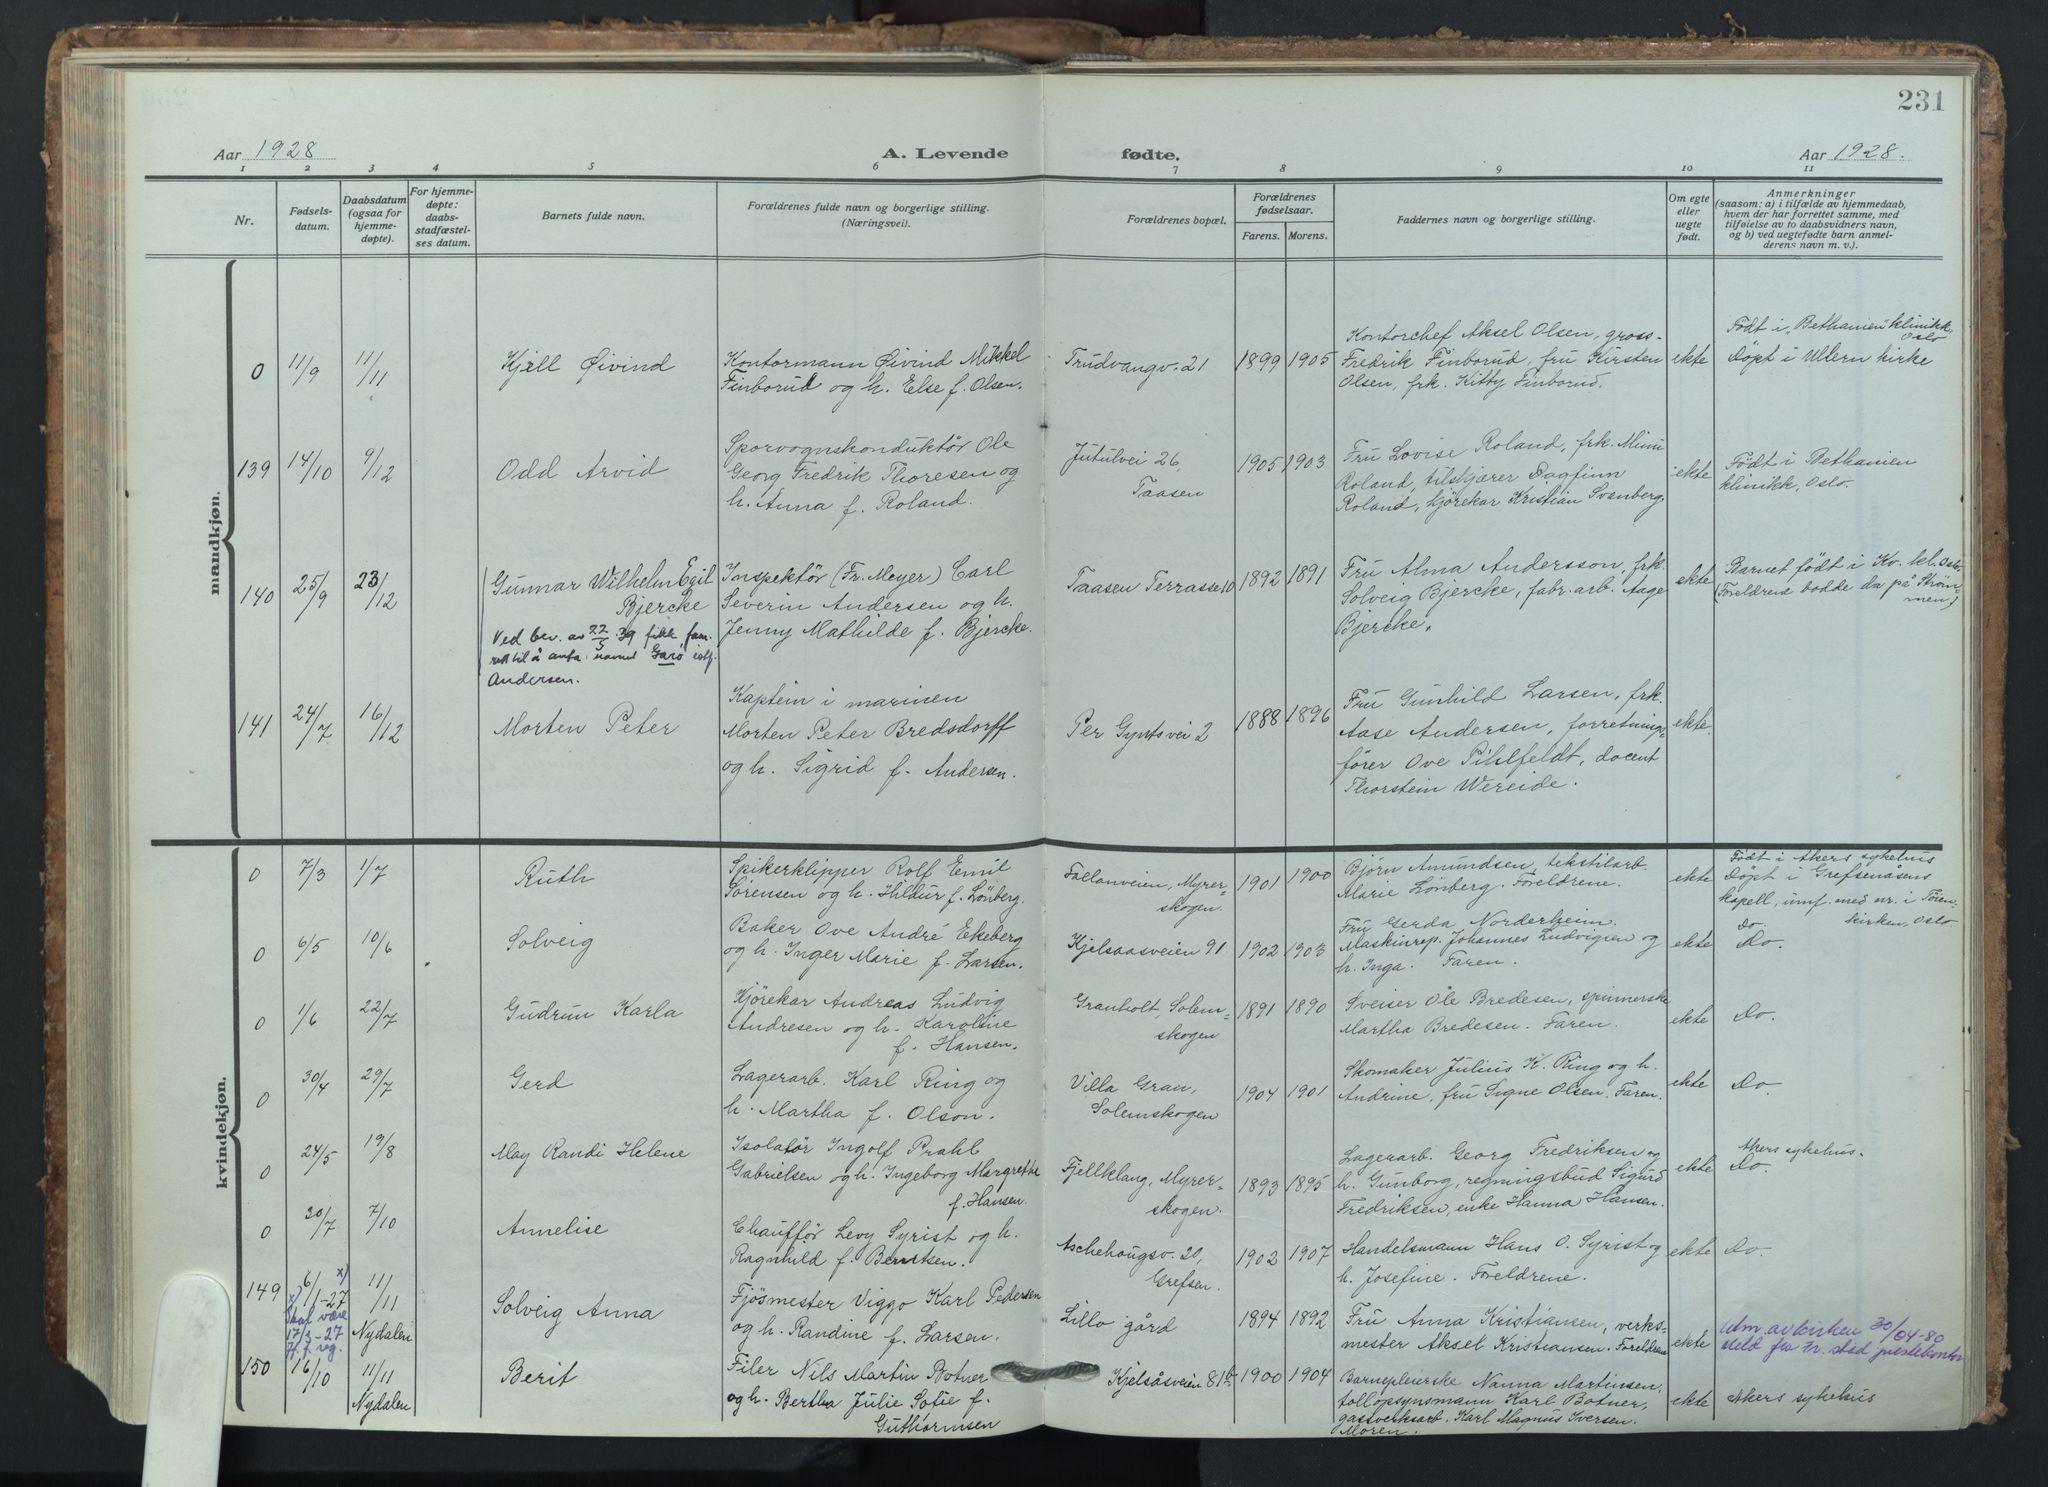 231
Aar 1928
A. Levende
fødte.
Aar 1928.
1 2 3 4 5 6 7 8 9 10 11
Nr.
Fødsels-
datum.
Daabsdatum
(ogsaa for
hjemme-
døpte).
For hjemme-
døpte:
daabs-
stadfæstel-
ses datum.
Barnets fulde navn.
Forældrenes fulde navn og borgerlige stilling.
(Næringsvei).
Forældrenes bopæl.
Forældrenes
fødselsaar.
Farens. Morens.
Faddernes navn og borgerlige stilling.
Om egte
eller
uegte
født.
Anmerkninger
(saasom: a) i tilfælde av hjemmedaab,
hvem der har forrettet samme, med
tilføielse av to daabsvidners navn,
og b) ved uegtefødte barn anmel-
derens navn m. v.).
mandkjøn.
0 11/9 11/11
Kjell Øivind
Kontormann Øivind Mikkel
Finborud og h. Else f. Olsen.
Trudvangv. 21
1899 1905
Kontorchef Aksel Olsen, gross-
Fredrik Finborud, fru Kirsten
Olsen, frk. Kitty Finborud.
ekte
Født i "Bethanien" klinikk,
Oslo
Døpt i Ullern kirke
139 14/10 9/12
Odd Arvid
Sporvognskonduktør Ole
Georg Fredrik Thoresen og
h. Anna f. Roland.
Jutulvei 26,
Taasen
1905 1903
Fru Lovise Roland, frk. Mimi
Roland, tilskjærer Dagfinn
Roland, kjörekar Kristian Svenberg.
ekte
Født i Bethanien
klinikk, Oslo.
140 25/9 23/12
Gunnar Wilhelm Egil
Bjercke
Ved bev. av 22/3 39 fikk fam.
rett til å anta navnet Garø istf.
Andersen.
Inspektör (Fr. Meyer) Carl
Severin Andersen og h.
Jenny Mathilde f. Bjercke.
Taasen Terrasse 10
1892 1891
Fru Alma Andersson, frk.
Solveig Bjercke, fabr. arb. Aage
Bjercke.
ekte
Barnet født i Kv. kl. Oslo
(Foreldrene bodde da på Strøm-
men)
141 24/7 16/12
Morten Peter
Kaptein i marinen
Morten Peter Bredsdorff
og h. Sigrid f. Andersen.
Per Gyntsvei 2
1888 1896
Fru Gunhild Larsen, frk.
Aase Andersen, forretnings-
fører Ove Pihlfeldt, docent
Thorstein Wereide.
ekte.
kvindekjøn.
0 7/3 1/7
Ruth
Spikerklipper Rolf Emil
Sörensen og h. Hildur f. Lönberg.
Fallanveien, Myrer-
skogen.
1901 1900
Björn Amundsen, tekstilarb.
Marie Lönberg. Foreldrene.
ekte
Født i Akers sykehus
Døpt i Grefsenåsens
kapell, innf. med nr. i Tøien-
kirken, Oslo
0 6/5 10/6
Solveig
Baker Ove André Ekeberg
og h. Inger Marie f. Larsen.
Kjelsaasveien 91
1902 1903
Fru Gerda Norderheim.
Maskinrep. Johannes Ludvigsen og
h. Inga. Faren.
ekte
Do.
Do.
0 1/6 22/7
Gudrun Karla
Kjörekar Andreas Ludvig
Andresen og h. Karoline
f. Hansen.
Granholt, Solem-
skogen
1891 1890
Sveiser Ole Bredesen, spinnerske
Martha Bredesen. Faren.
ekte
Do.
0 30/4 29/7
Gerd
Lagerarb. Karl Ring og
h. Martha f. Olson.
Villa Gran,
Solemskogen
1904 1901
Skomaker Julius K. Ring og h.
Andrine, fru Signe Olsen. Faren.
ekte
Do.
0 24/5 19/8
May Randi Helene
Isolatör Ingolf Prahl
Gabrielsen og h. Ingeborg Margrethe
f. Hansen
Fjellklang, Myrer-
skogen.
1893 1895
Lagerarb. Georg Fredriksen og
h. Gunborg, regningsbud Sigurd
Fredriksen, enke Hanna Hansen.
ekte
Akers sykehus.
Do.
0 20/7 7/10
Annelise
Chauffør Levy Syrist og h.
Ragnhild f. Berntsen.
Aschehougsv. 20,
Grefsen.
1902 1907
Handelsmann Hans O. Syrist og
h. Josefine. Foreldrene.
ekte
Do.
149 6/1-27 x) 11/11
x) Skal være
17/3-27
Nydalen
Solveig Anna
Fjösmester Viggo Karl Pedersen
og h. Randine f. Larsen.
Lillo gård
1894 1892
Fru Anna Kristiansen, verks-
mester Aksel Kristiansen. Foreldrene
ekte
Utm av kirken 30/04-80
Meld fra Fr. stad prestekontor
150 16/10 11/11
Nydalen
Berit
Filer Nils Martin Botner
og h. Bertha Julie Sofie f.
Guthormsen
Kjelsåsveien 81b
1900 1904
Barnepleierske Nanna Martinsen,
tollopsynsmann Karl Botner,
gassverksarb. Karl Magnus Iversen.
Moren.
ekte
Akers sykehus